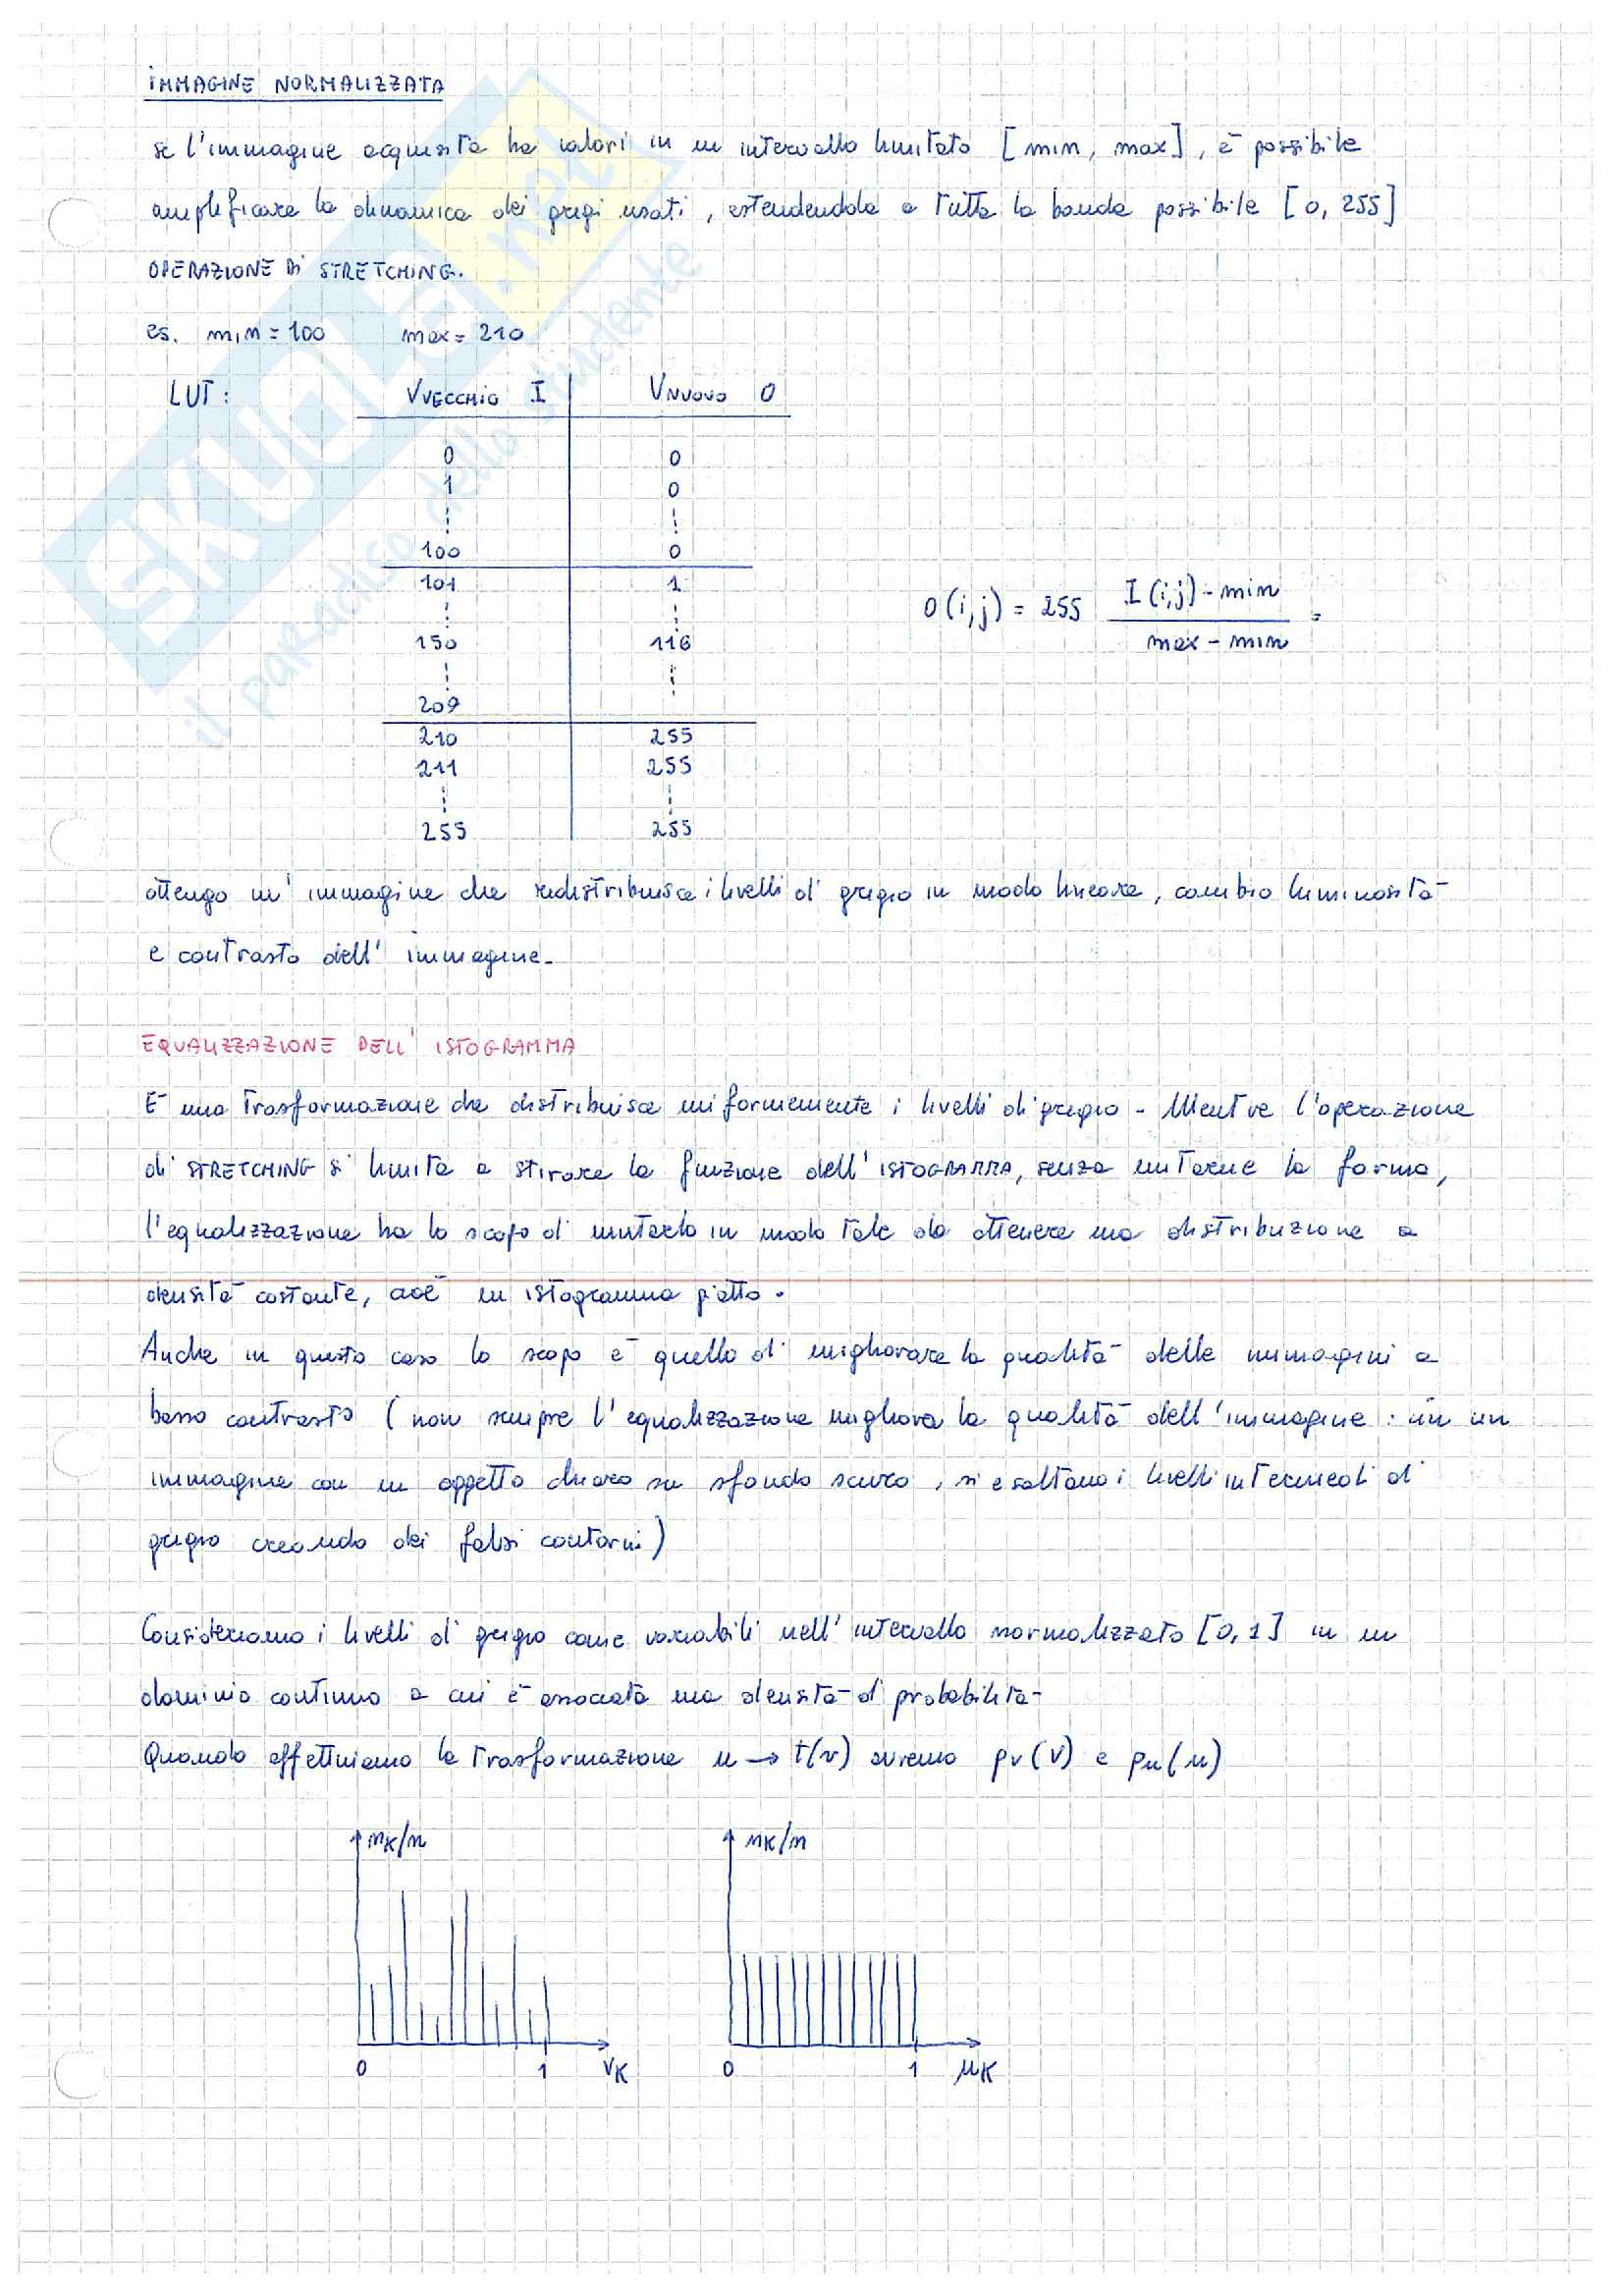 IMMAGINE NORMALIZZATA
se l'immagine acquisita ha valori in un intervallo limitato [min, max], è possibile
amplificare la dinamica dei grigi usati, estendendola a tutta la banda possibile [0, 255]
OPERAZIONE DI STRETCHING.
es. min = 100 max = 210
LUT: VVECCHIO I VNUOVO O
0 0
1 0
100 0
101 1
150 116
209
210 255
211 255
255 255
O(i,j) = 255 I(i,j) - min / max - min =
ottengo un'immagine che redistribuisce i livelli di grigio in modo lineare, cambio luminosità
e contrasto dell'immagine.
EQUALIZZAZIONE DELL'ISTOGRAMMA
È una trasformazione che distribuisce uniformemente i livelli di grigio - Mentre l'operazione
di STRETCHING si limita a stirare la funzione dell'ISTOGRAMMA, senza mutarne la forma,
l'equalizzazione ha lo scopo di mutarlo in modo tale da ottenere una distribuzione a
densità costante, cioè un istogramma piatto.
Anche in questo caso lo scopo è quello di migliorare la qualità delle immagini a
basso contrasto (non sempre l'equalizzazione migliora la qualità dell'immagine: in un
immagine con un oggetto chiaro su sfondo scuro, si esaltano i livelli intermedi di
grigio creando dei falsi contorni)
Consideriamo i livelli di grigio come variabili nell'intervallo normalizzato [0,1] in un
dominio continuo a cui è associata una densità di probabilità-
Quando effettuiamo la trasformazione u → t(v) avremo pv(v) e pu(u)
nK/n nK/n
0 1 vK 0 1 uK
SKUOLA.net
il paradiso dello studente